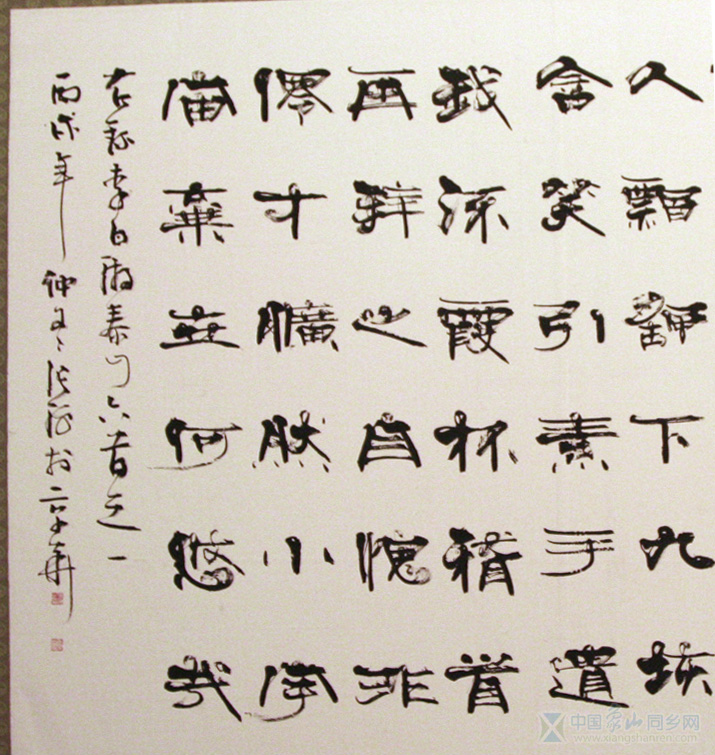 人飄颻下九垓
含笑引素手遺
我流霞杯稽首
再拜之自愧非
僊才曠然小宇
宙棄世何悠哉
右録李白游泰山六首之一
丙戌年仲冬於京華
中国象山同乡网
www.xiangshanren.com